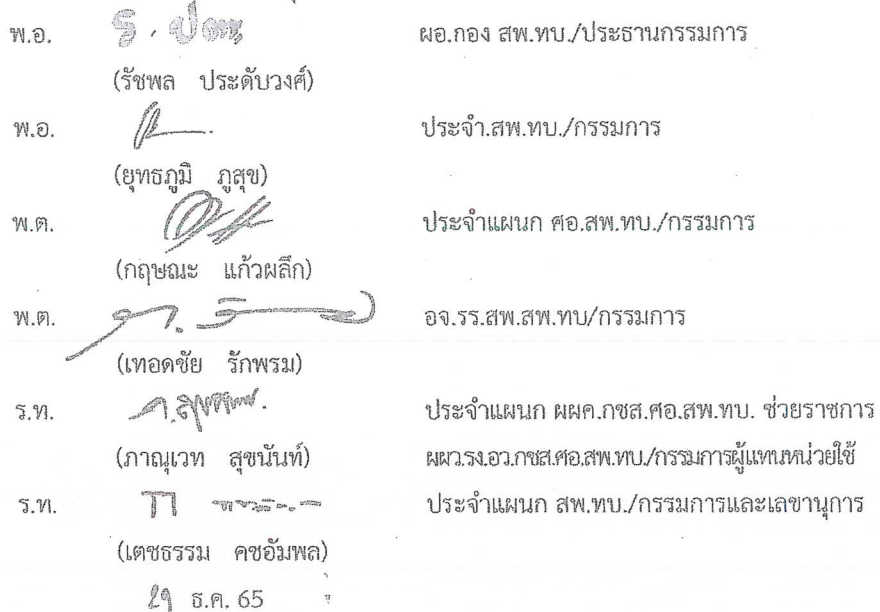 พ.อ. ร. ผอ.กอง สพ.ทบ./ประธานกรรมการ
(รัชพล ประดับวงศ์)
พ.อ. ประจำ.สพ.ทบ./กรรมการ
(ยุทธภูมิ ภูสุข)
พ.ต. ประจำแผนก ศอ.สพ.ทบ./กรรมการ
(กฤษณะ แก้วผลึก)
พ.ต. อจ.รร.สพ.สพ.ทบ/กรรมการ
(เทอดชัย รักพรม)
ร.ท. ประจำแผนก ผผค.กซส.ศอ.สพ.ทบ. ช่วยราชการ
(ภาณุเวท สุขนันท์) ผผว.รง.อว.กซส.ศอ.สพ.ทบ./กรรมการผู้แทนหน่วยใช้
ร.ท. ประจำแผนก สพ.ทบ./กรรมการและเลขานุการ
(เตชธรรม คชอัมพล)
29 ธ.ค. 65